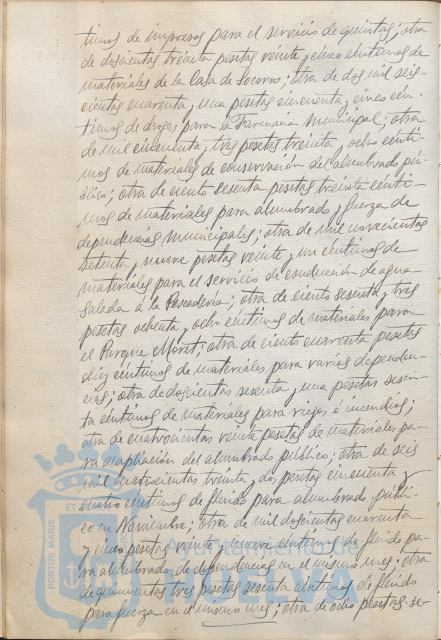 timos de impresos para el servicio de quintas; otra
de doscientas treinta pesetas veinte y cinco céntimos de
materiales de la Casa de Socorro; otra de dos mil seis-
cientas cuarenta y una pesetas cincuenta y cinco cén-
timos de drogas para la Farmacia Municipal; otra
de mil cincuenta y tres pesetas treinta y ocho cénti-
mos de materiales de conservación del alumbrado pú-
blico; otra de ciento sesenta pesetas treinta cénti-
mos de materiales para alumbrado y fuerza de
dependencias municipales; otra de mil novecientas
setenta y nueve pesetas veinte y un céntimos de
materiales para el servicio de conducción de agua
salada a la Pescadería; otra de ciento sesenta y tres
pesetas ochenta y ocho céntimos de materiales para
el Parque Moret; otra de ciento cuarenta pesetas
diez céntimos de materiales para varias dependen-
cias; otra de doscientas sesenta y una pesetas sesen-
ta céntimos de materiales para riegos é incendios;
otra de cuatrocientas veinte pesetas de materiales pa-
ra ampliación del alumbrado público; otra de seis
mil cuatrocientas treinta y dos pesetas cincuenta y
cuatro céntimos de fluido para alumbrado públi-
co en Noviembre; otra de mil doscientas cuarenta
y cinco pesetas veinte y nueve céntimos de fluido pa-
ra alumbrado de dependencias en el mismo mes; otra
de quinientas tres pesetas sesenta céntimos de fluido
para fuerza en el mismo mes; otra de ocho pesetas se-
PORTUS MARIS
ET
Ayuntamiento de
HUELVA